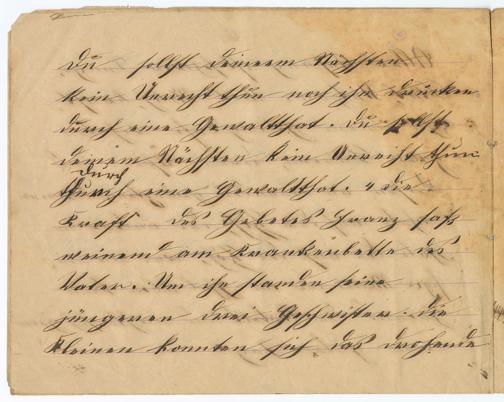 Du sollst deinem Nächsten
kein Unrecht thun noch ihn drücken
durch eine Gewaltthat. Du sollst
deinem Nächsten kein Unrecht thun
durch
durch eine Gewaltthat. 4 die
Kraft des Gebetes Franz saß
weinend am Krankenbette des
Vater. Um ihn standen seine
jüngeren drei Geschwister. die
Kleinen konnten sich das drohende